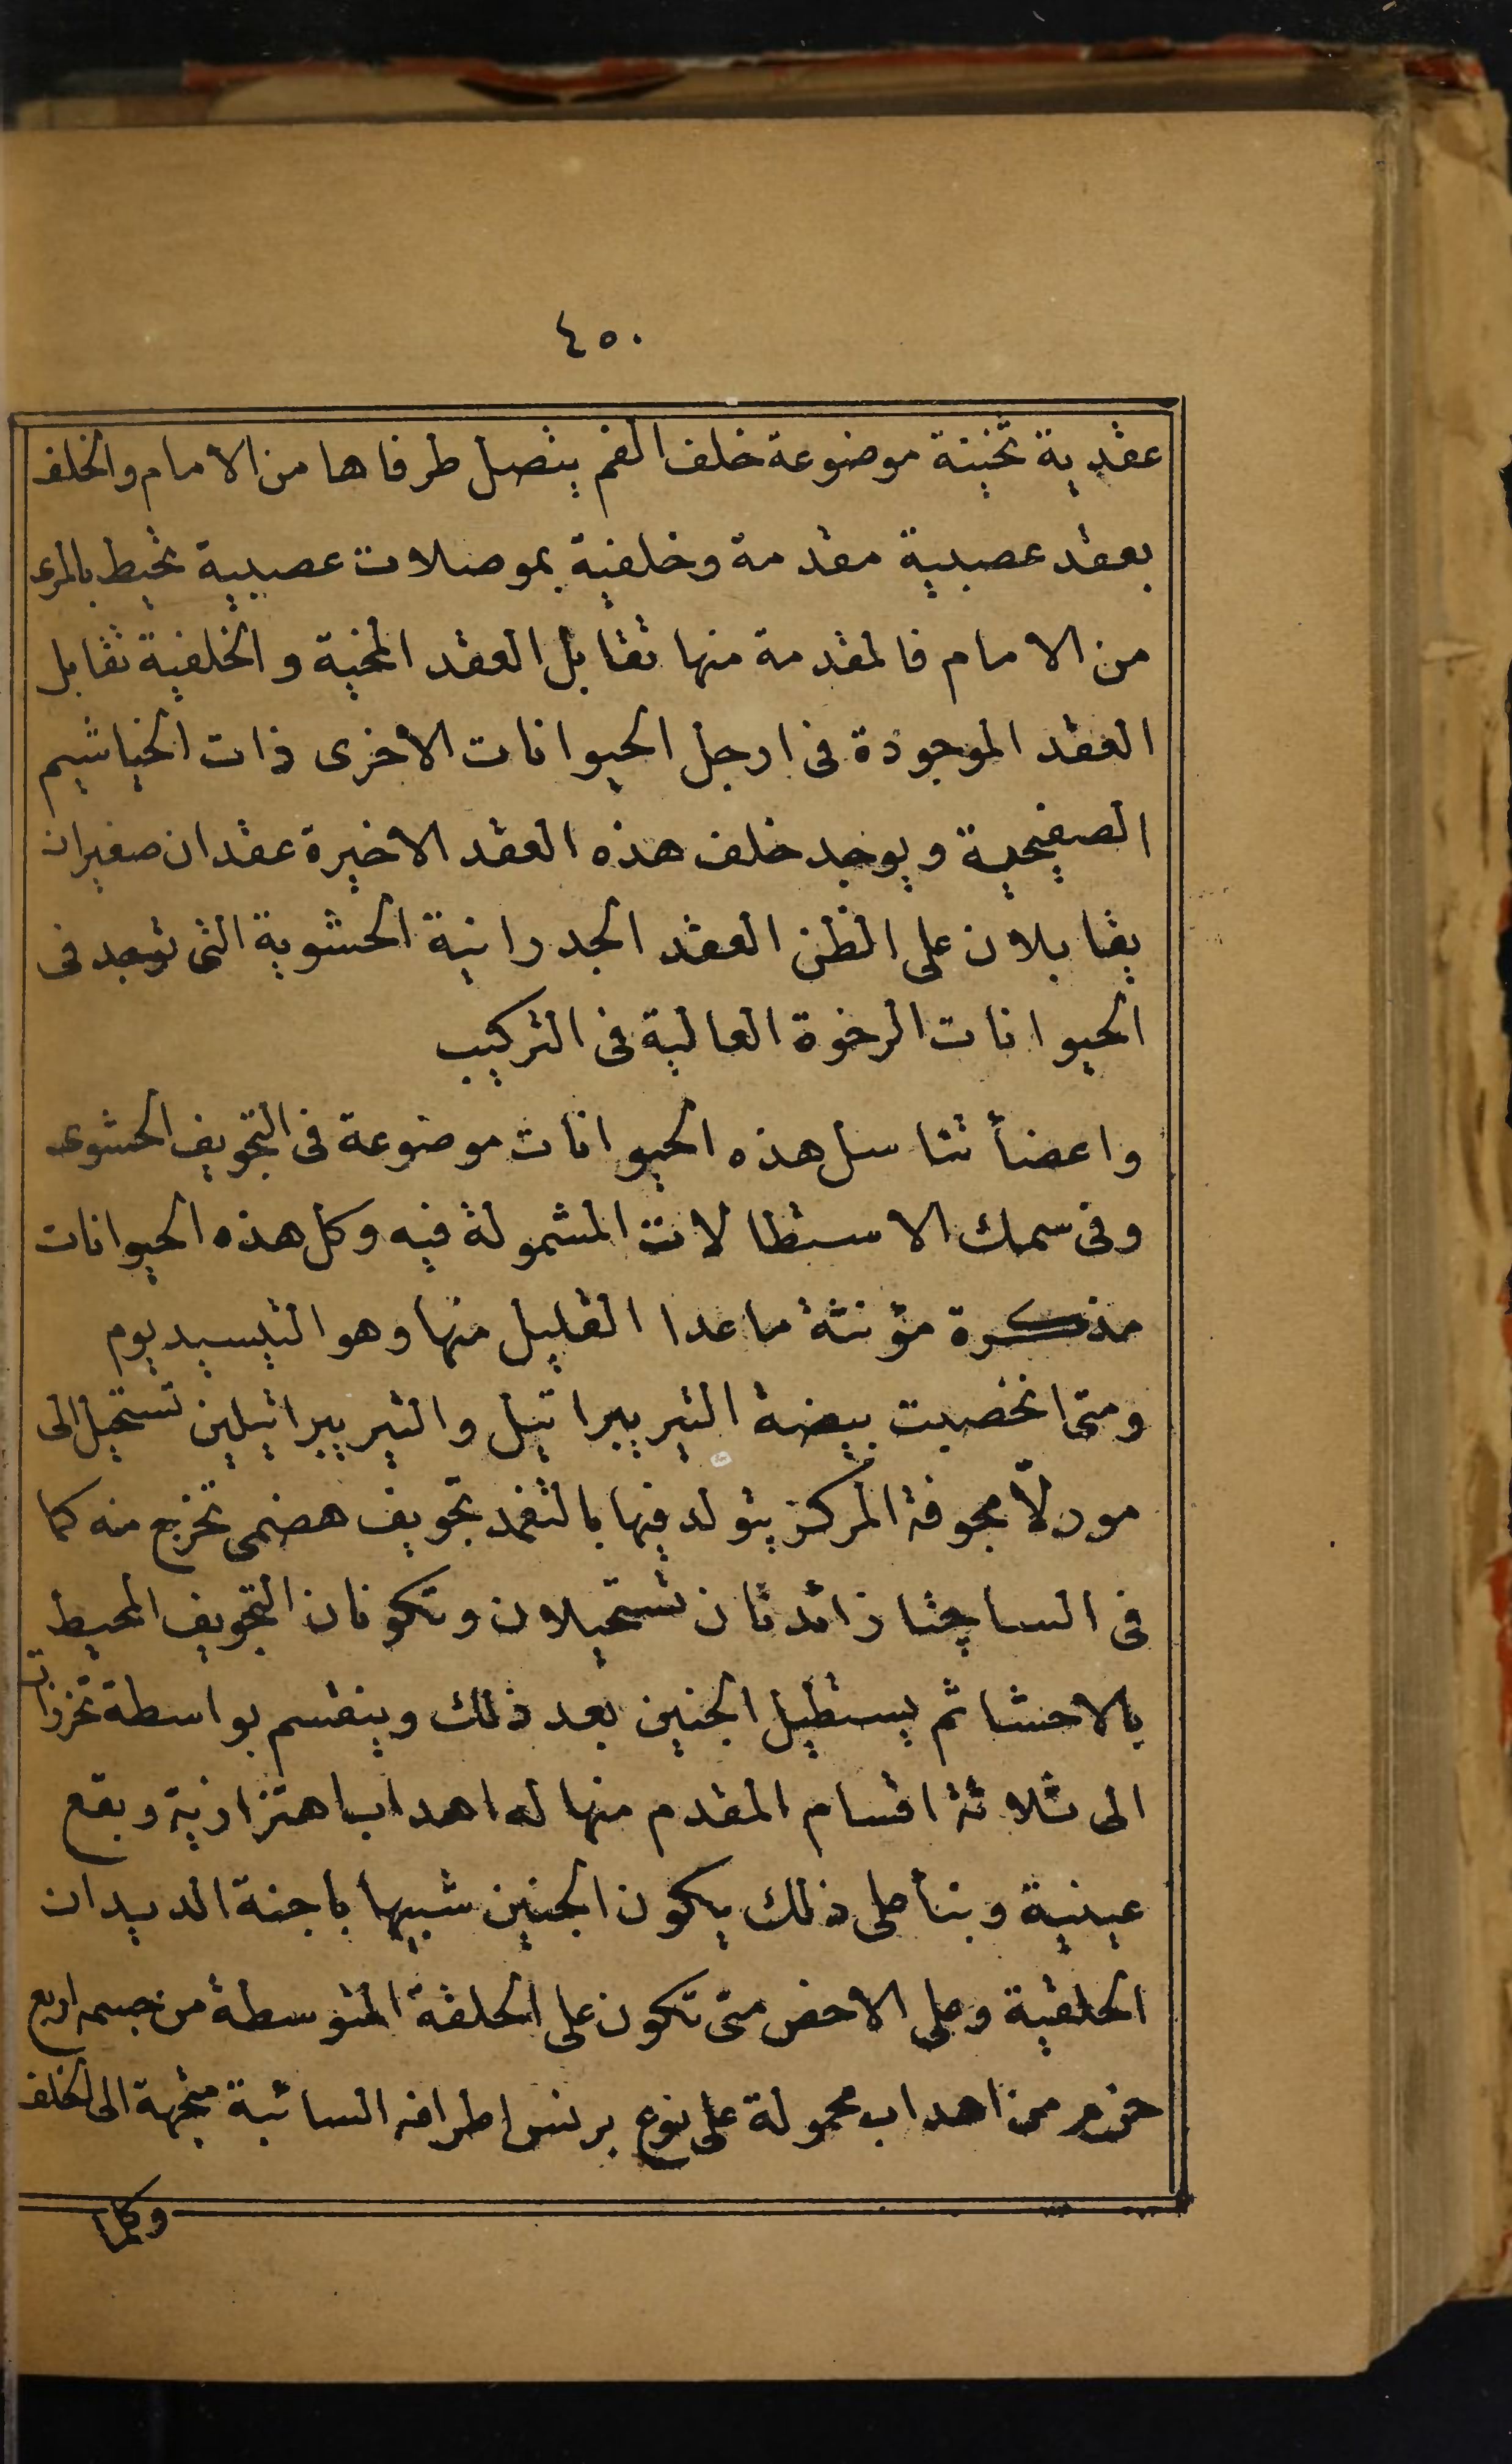 ٤٥٠
عقدية ثخينة موضوعة خلف الفم يتصل طرفاها من الامام والخلف
بعقد عصبية مقدمة وخلفية بموصلات عصبية تحيط بالمرى
من الامام فالمقدمة منها تقابل العقد المخية والخلفية تقابل
العقد الموجودة فى ارجل الحيوانات الاخرى ذات الخياشيم
الصفيحية ويوجد خلف هذه العقد الاخيرة عقدان صغيران
يقابلان على الظن العقد الجدرانية الحشوية التى توجد فى
الحيوانات الرخوة العالية فى التركيب
واعضأ تناسل هذه الحيوانات موضوعة فى التجويف الحشوى
وفى سمك الاستطالات المشمولة فيه وكل هذه الحيوانات
مذكرة مؤنثة ماعدا القليل منها وهو التيسيديوم
ومتى انخصبت بيضة التيريبراتيل والتيريبراتيلين تستحيل الى
مورلّا مجوفة المركز يتولد فيها بالتغمد تجويف هضمى تخرج منه كما
فى الساجتا زائدتان تستحيلان وتكونان التجويف المحيط
بالاحشا ثم يستطيل الجنين بعد ذلك وينقسم بواسطة تخرزات
الى ثلاثة اقسام المقدم منها له اهداب اهتزازية وبقع
عينية وبنأ على ذلك يكون الجنين شبيها باجنة الديدان
الحلقية وعلى الاخص متى تكون على الحلقة المتوسطة من جسمه اربع
حزم من اهداب محمولة على نوع برنس اطرافه السائبة متجهة الى الخلف
وكلما